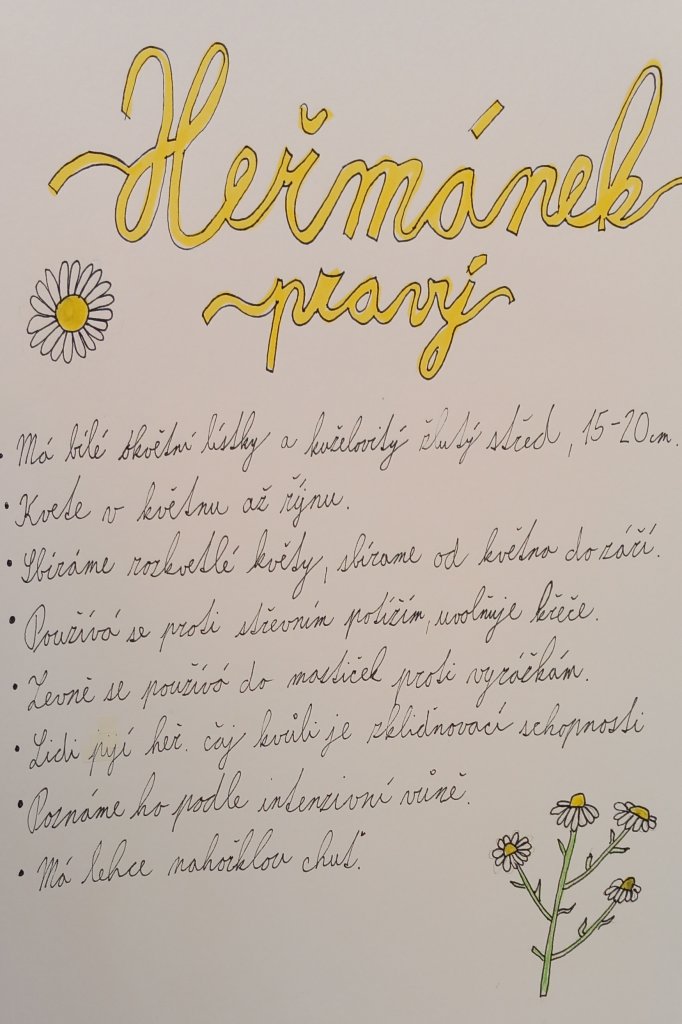 Heřmánek
pravý
• Má bílé okvětní lístky a kuželovitý žlutý střed, 15-20cm.
• Kvete v květnu až říjnu.
• Sbíráme rozkvetlé květy, sbírame od května do září.
• Používá se proti střevním potížím, uvolňuje křeče.
• Zevně se používá do mastiček proti vyráčkám.
• Lidi pijí heř. čaj kvůli je zklidnovací schopnosti
• Poznáme ho podle intenzivní vůně.
• Má lehce nahořklou chuť.